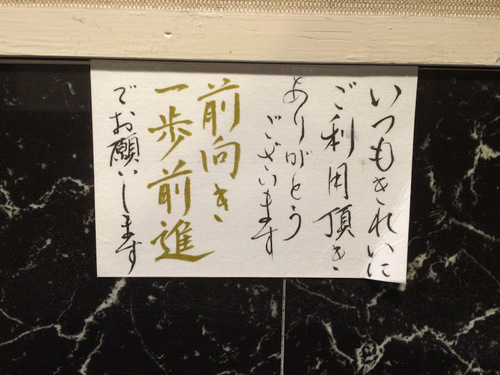 いつもきれいに
ご利用頂き
ありがとう
ございます
前向き
一歩前進
でお願いします